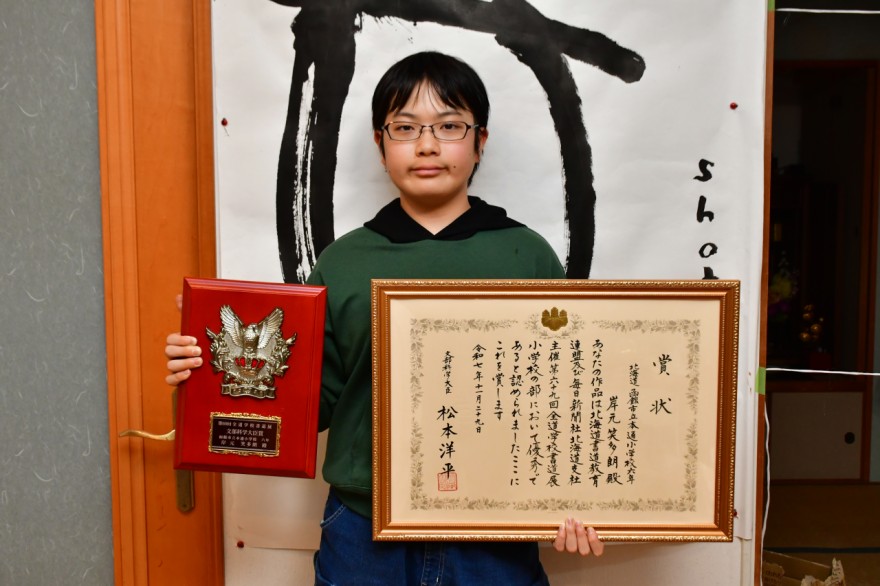 賞状
北海道 函館市立本通小学校六年
岸元 笑多朗 殿
あなたの作品は北海道書道教育
連盟及び毎日新聞社北海道支社
主催第六十九回全道学校書道展
小学校の部において優秀で
あると認められましたここに
これを賞します
令和七年十一月二十九日
文部科学大臣 松本洋平
第69回全道学校書道展
文部科学大臣賞
函館市立本通小学校 六年
岸元 笑多朗 殿
shot